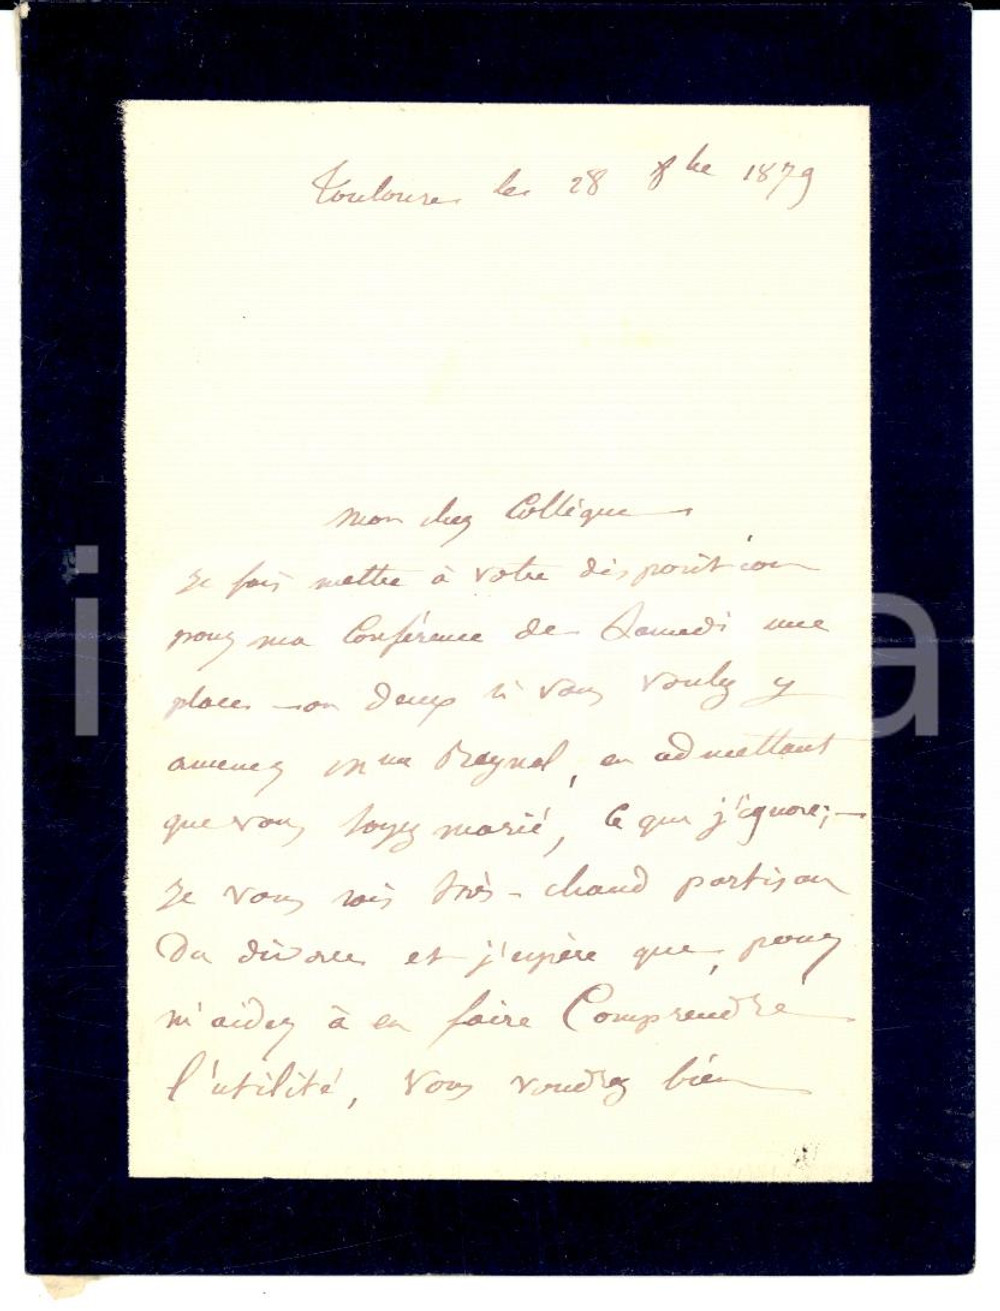 Toulouse le 28 8bre 1879
Mon cher Collègue
Je fais mettre à votre disposition
pour ma Conférence de Samedi une
place ou deux si vous voulez y
amener Mme Raynal, en admettant
que vous soyez marié, ce que j'ignore; —
Je vous sais très-chaud partisan
du divorce et j'espère que, pour
m'aider à en faire Comprendre
l'utilité, vous voudrez bien